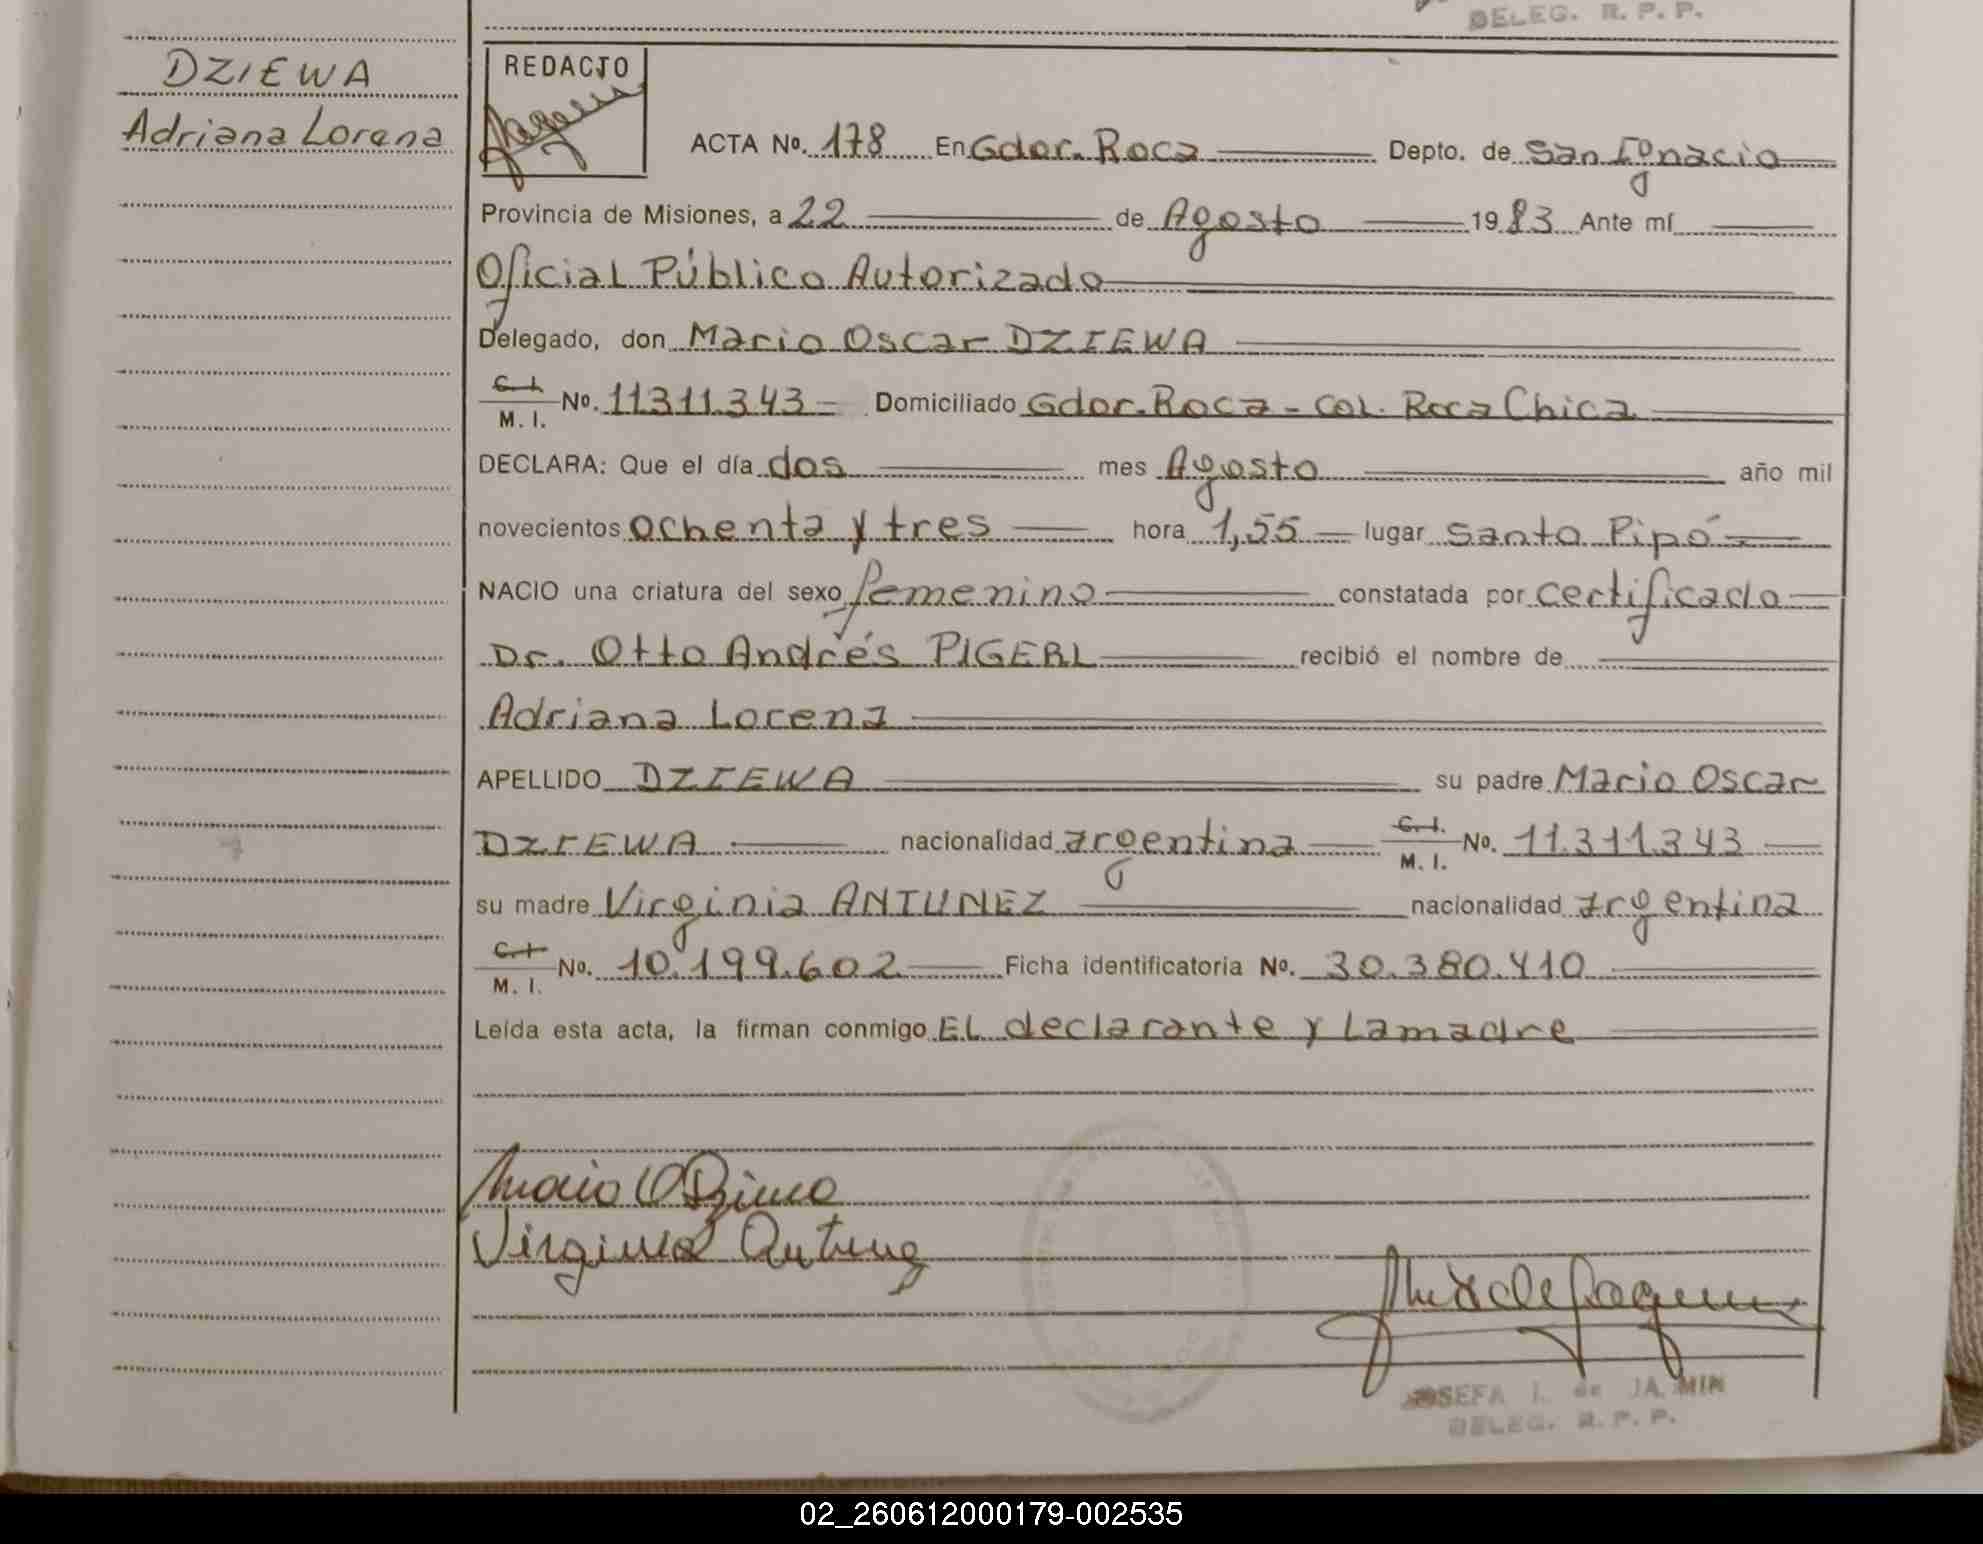 DELEG. R. P. P.
DZIEWA
Adriana Lorena
REDACTO
ACTA Nº. 178 En Gdor. Roca Depto. de San Ignacio
Provincia de Misiones, a 22 de Agosto 1983 Ante mí
Oficial Público Autorizado
Delegado, don Mario Oscar DZIEWA
C. I.
M. I. Nº. 11.311.343 Domiciliado Gdor. Roca - Col. Roca Chica
DECLARA: Que el día dos mes Agosto año mil
novecientos ochenta y tres hora 1,55 lugar Santo Pipó
NACIO una criatura del sexo femenino constatada por certificado
Dr. Otto Andrés PIGERL recibió el nombre de
Adriana Lorena
APELLIDO DZIEWA su padre Mario Oscar
DZIEWA nacionalidad argentina C. I. M. I. Nº. 11.311.343
su madre Virginia ANTUNEZ nacionalidad argentina
C. I.
M. I. Nº. 10.199.602 Ficha identificatoria Nº. 30.380.410
Leída esta acta, la firman conmigo EL declarante y La madre
Mario O Dziewa
Virginia Antunez
JOSEFA I. de JA MIN
DELEG. R. P. P.
02_260612000179-002535